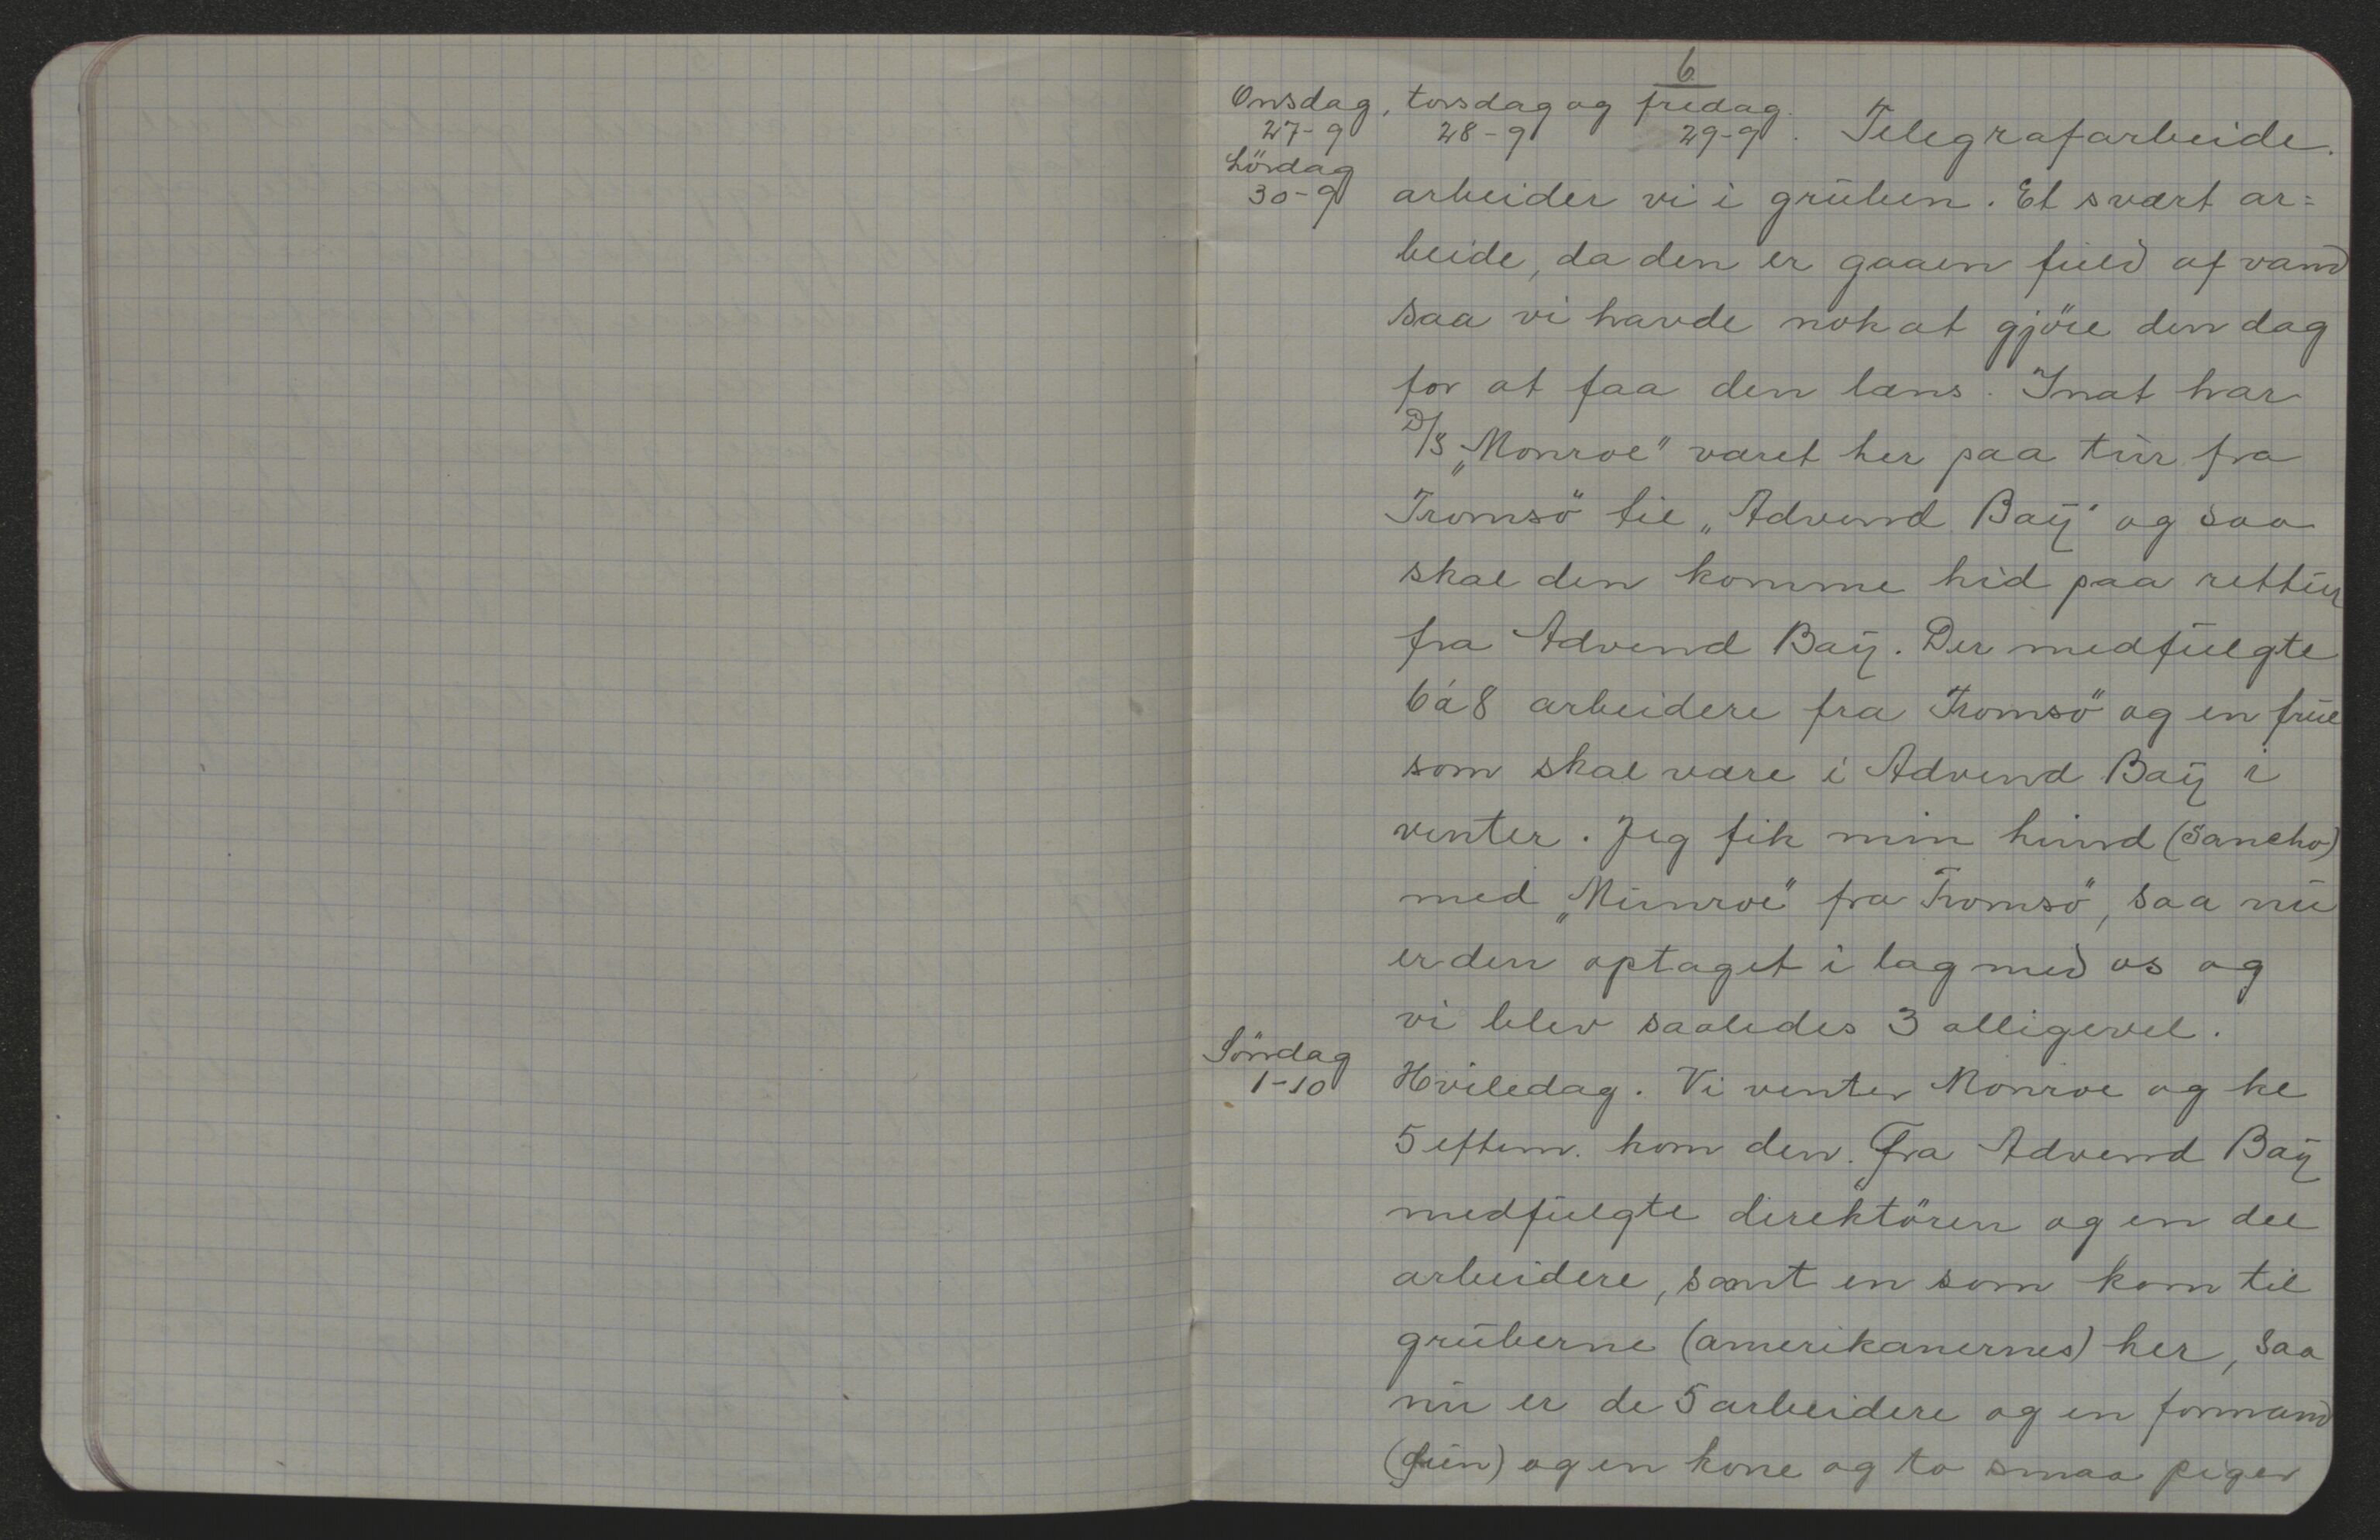 6
Onsdag, torsdag og fredag.
27-9 28-9 29-9. Telegrafarbeide.
Lördag
30-9 arbeider vi i grŭben. Et svært ar=
beide, da den er gaaen fŭld af vand
saa vi havde nok at gjöre den dag
for at faa den læns. Inat har
D/S „Monroe" været her paa tŭr fra
Tromsö til „Advend Baÿ" og saa
skal den komme hid paa rettŭr
fra Advend Baÿ. Der medfŭlgte
6 á 8 arbeidere fra Tromsö og en frŭe
som skal være i Advend Baÿ i
vinter. Jeg fik min hŭnd (Sancho)
med „Mŭnroe" fra Tromsö, saa nŭ
er den optaget i lag med os og
vi blev saaledes 3 alligevel.
Söndag
1-10 Hviledag. Vi venter Monroe og kl
5 efterm. kom den. Fra Advend Baÿ
medfŭlgte direktören og en del
arbeidere, samt en som kom til
grŭberne (amerikanernes) her, saa
nŭ er de 5 arbeidere og en formand
og en kone og to smaa piger